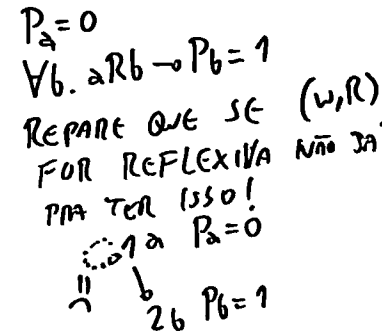 Pa=0
∀b. aRb → Pb=1
REPARE QUE SE (W,R)
FOR REFLEXIVA NÃO DÁ
PRA TER ISSO!
1a Pa=0
2b Pb=1